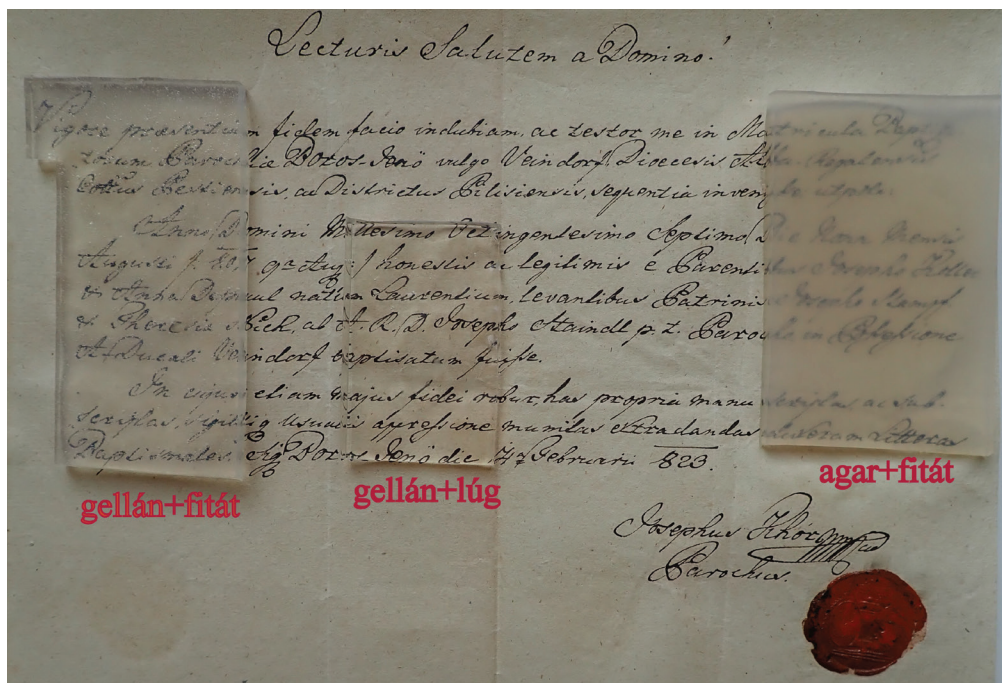 Lecturis Salutem a Domino!
Vigore præsentium fidem facio indubiam, ac testor me in Matricula Baptiza-
torum Parochiæ Boros-Jenö vulgo Veindorf, Dioecesis Alba Regalensis
Cottus Pestiensis, ac Districtus Pilisiensis, sequentia invenisse utpote.
Anno Domini Millesimo Octingentesimo Septimo, Die Nona Mensis
Augusti 807 9a Aug: honestis ac legitimis è Parentibus Josepho
& Anna natum Laurentium, levantibus Patrinis Josepho Stampf
& Theresia ab A. R. D. Josepho Staindl p. t. Parocho in
A. Ducali Veindorf baptisatum fuisse.
In cujus etiam majus fidei robur, has propria manu scriptas ac sub-
scriptas, Sigilliq usualis appressione munitas extradandas Litteras
Baptismales. Sig Boros Jenö die 14 Februarii 823.
gellán+fitát
gellán+lúg
agar+fitát
Josephus
Parochus.